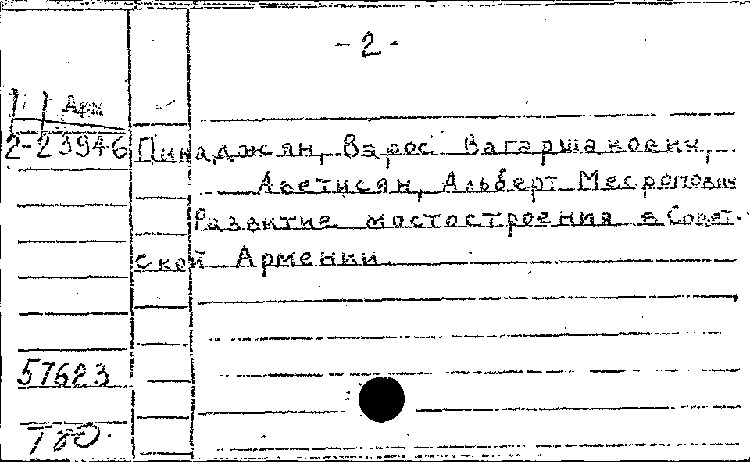 - 2 -
Арм
2-23946 Пинаджян, Варос Вагаршакович,
Аветисян, Альберт Месропович
Развитие мостостроения в Совет-
ской Армении
57623
T80.